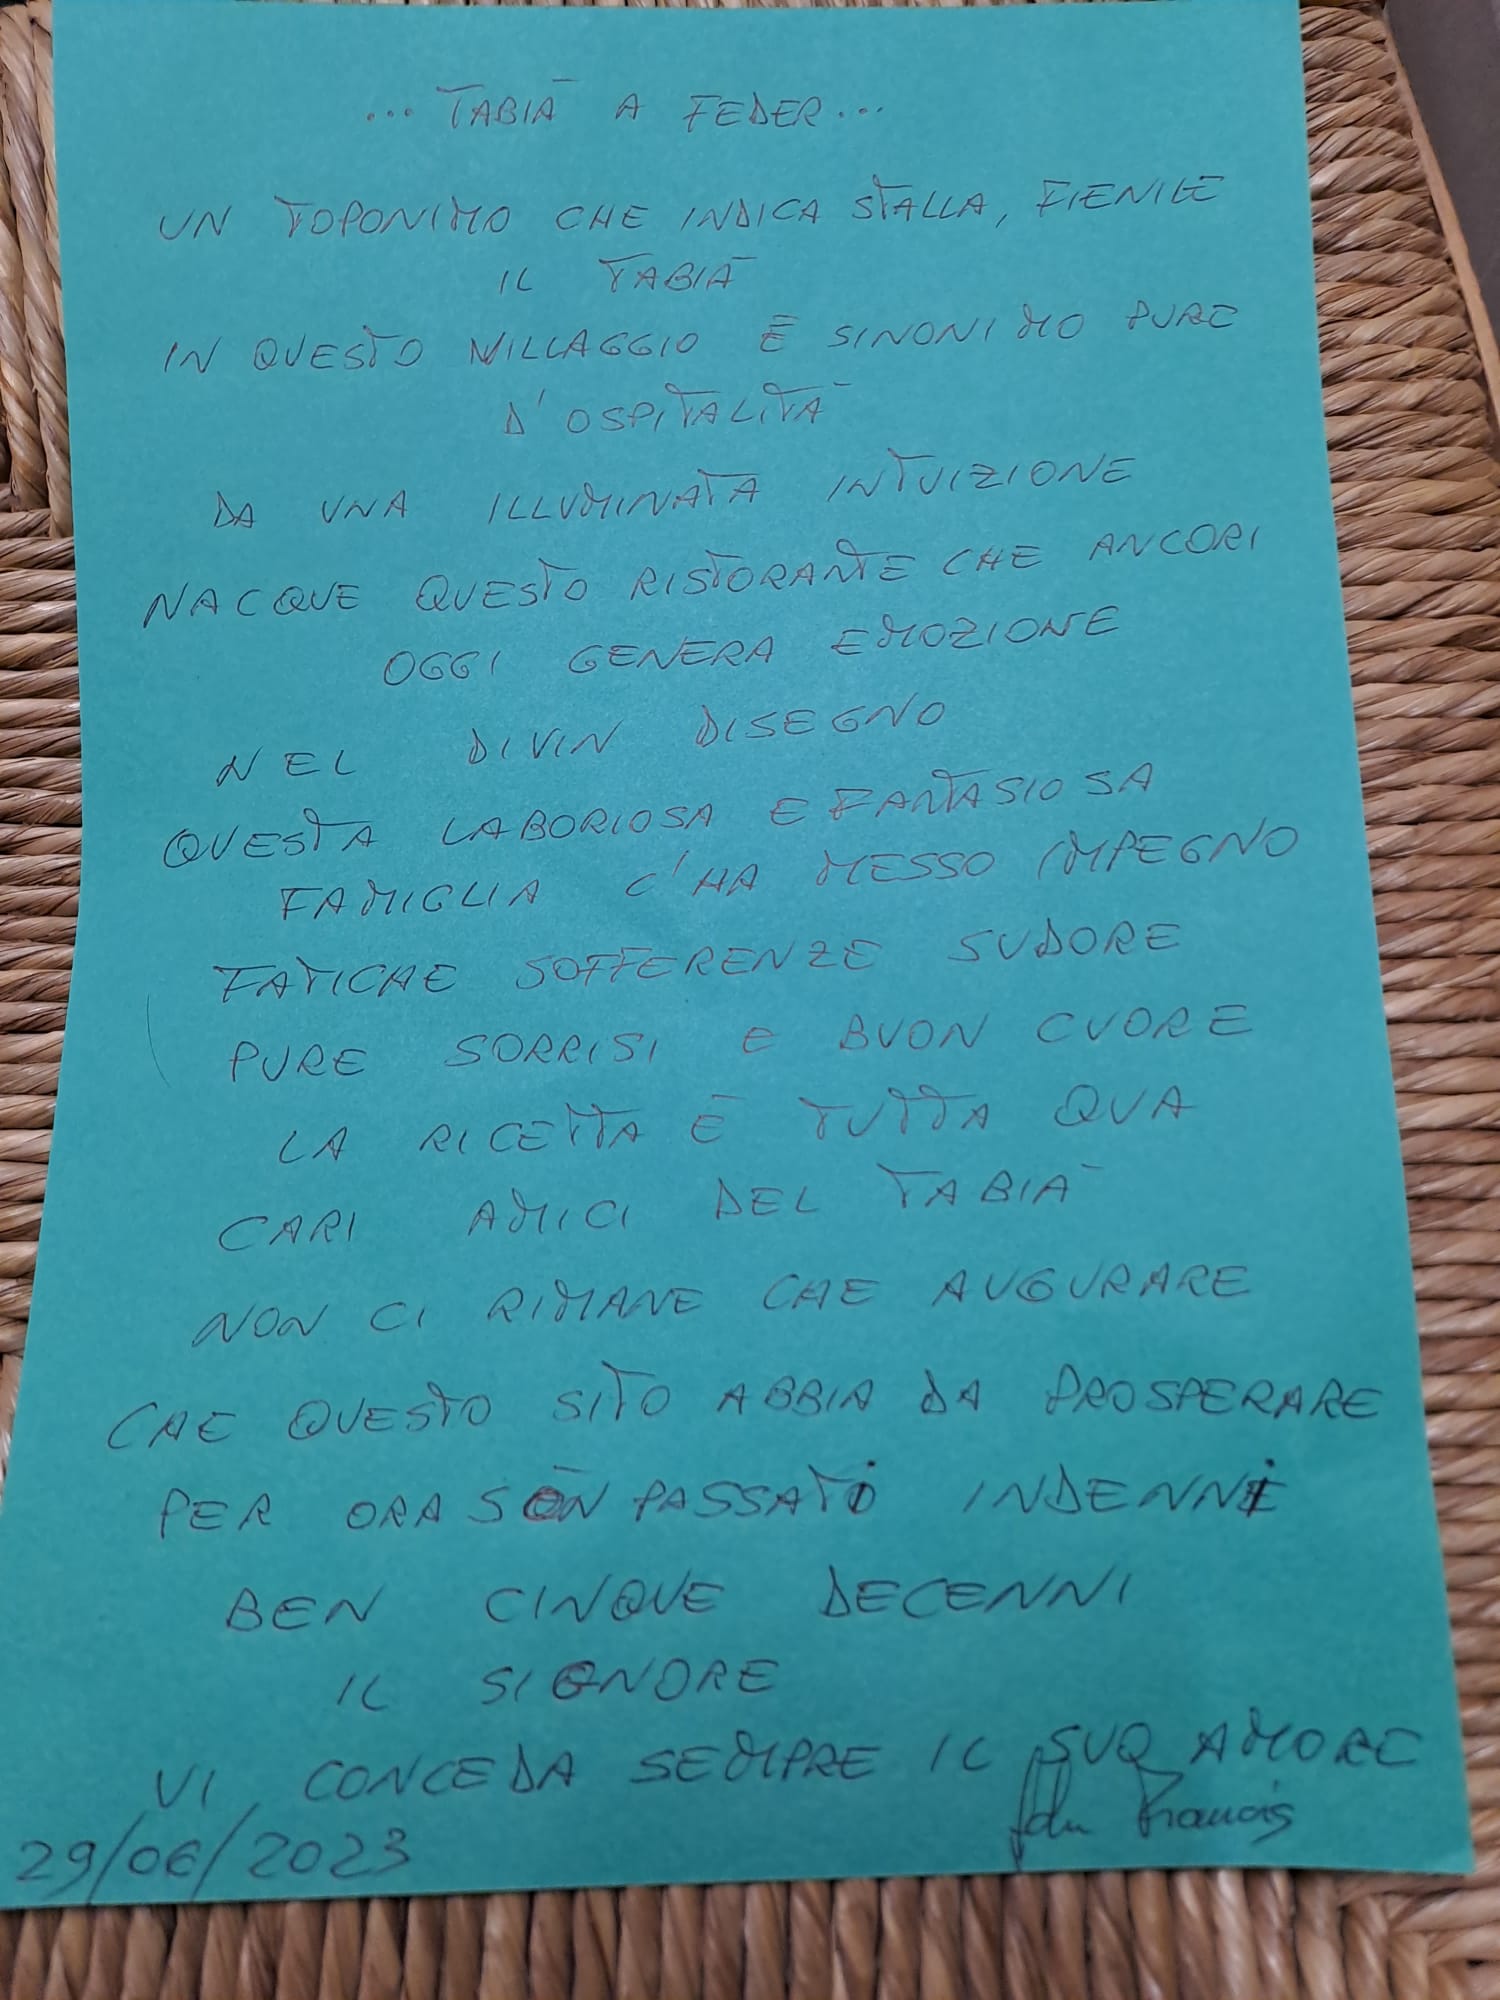 ... TABIÀ A FEDER ...
UN TOPONIMO CHE INDICA STALLA, FIENILE
IL TABIÀ
IN QUESTO VILLAGGIO È SINONIMO PURE
D'OSPITALITÀ
DA UNA ILLUMINATA INTUIZIONE
NACQUE QUESTO RISTORANTE CHE ANCORI
OGGI GENERA EMOZIONE
NEL DIVIN DISEGNO
QUESTA LABORIOSA E FANTASIOSA
FAMIGLIA C'HA MESSO IMPEGNO
FATICHE SOFFERENZE SUDORE
PURE SORRISI E BUON CUORE
LA RICETTA È TUTTA QUA
CARI AMICI DEL TABIÀ
NON CI RIMANE CHE AUGURARE
CHE QUESTO SITO ABBIA DA PROSPERARE
PER ORA SON PASSATI INDENNI
BEN CINQUE DECENNI
IL SIGNORE
VI CONCEDA SEMPRE IL SUO AMORE
John Francis
29/06/2023